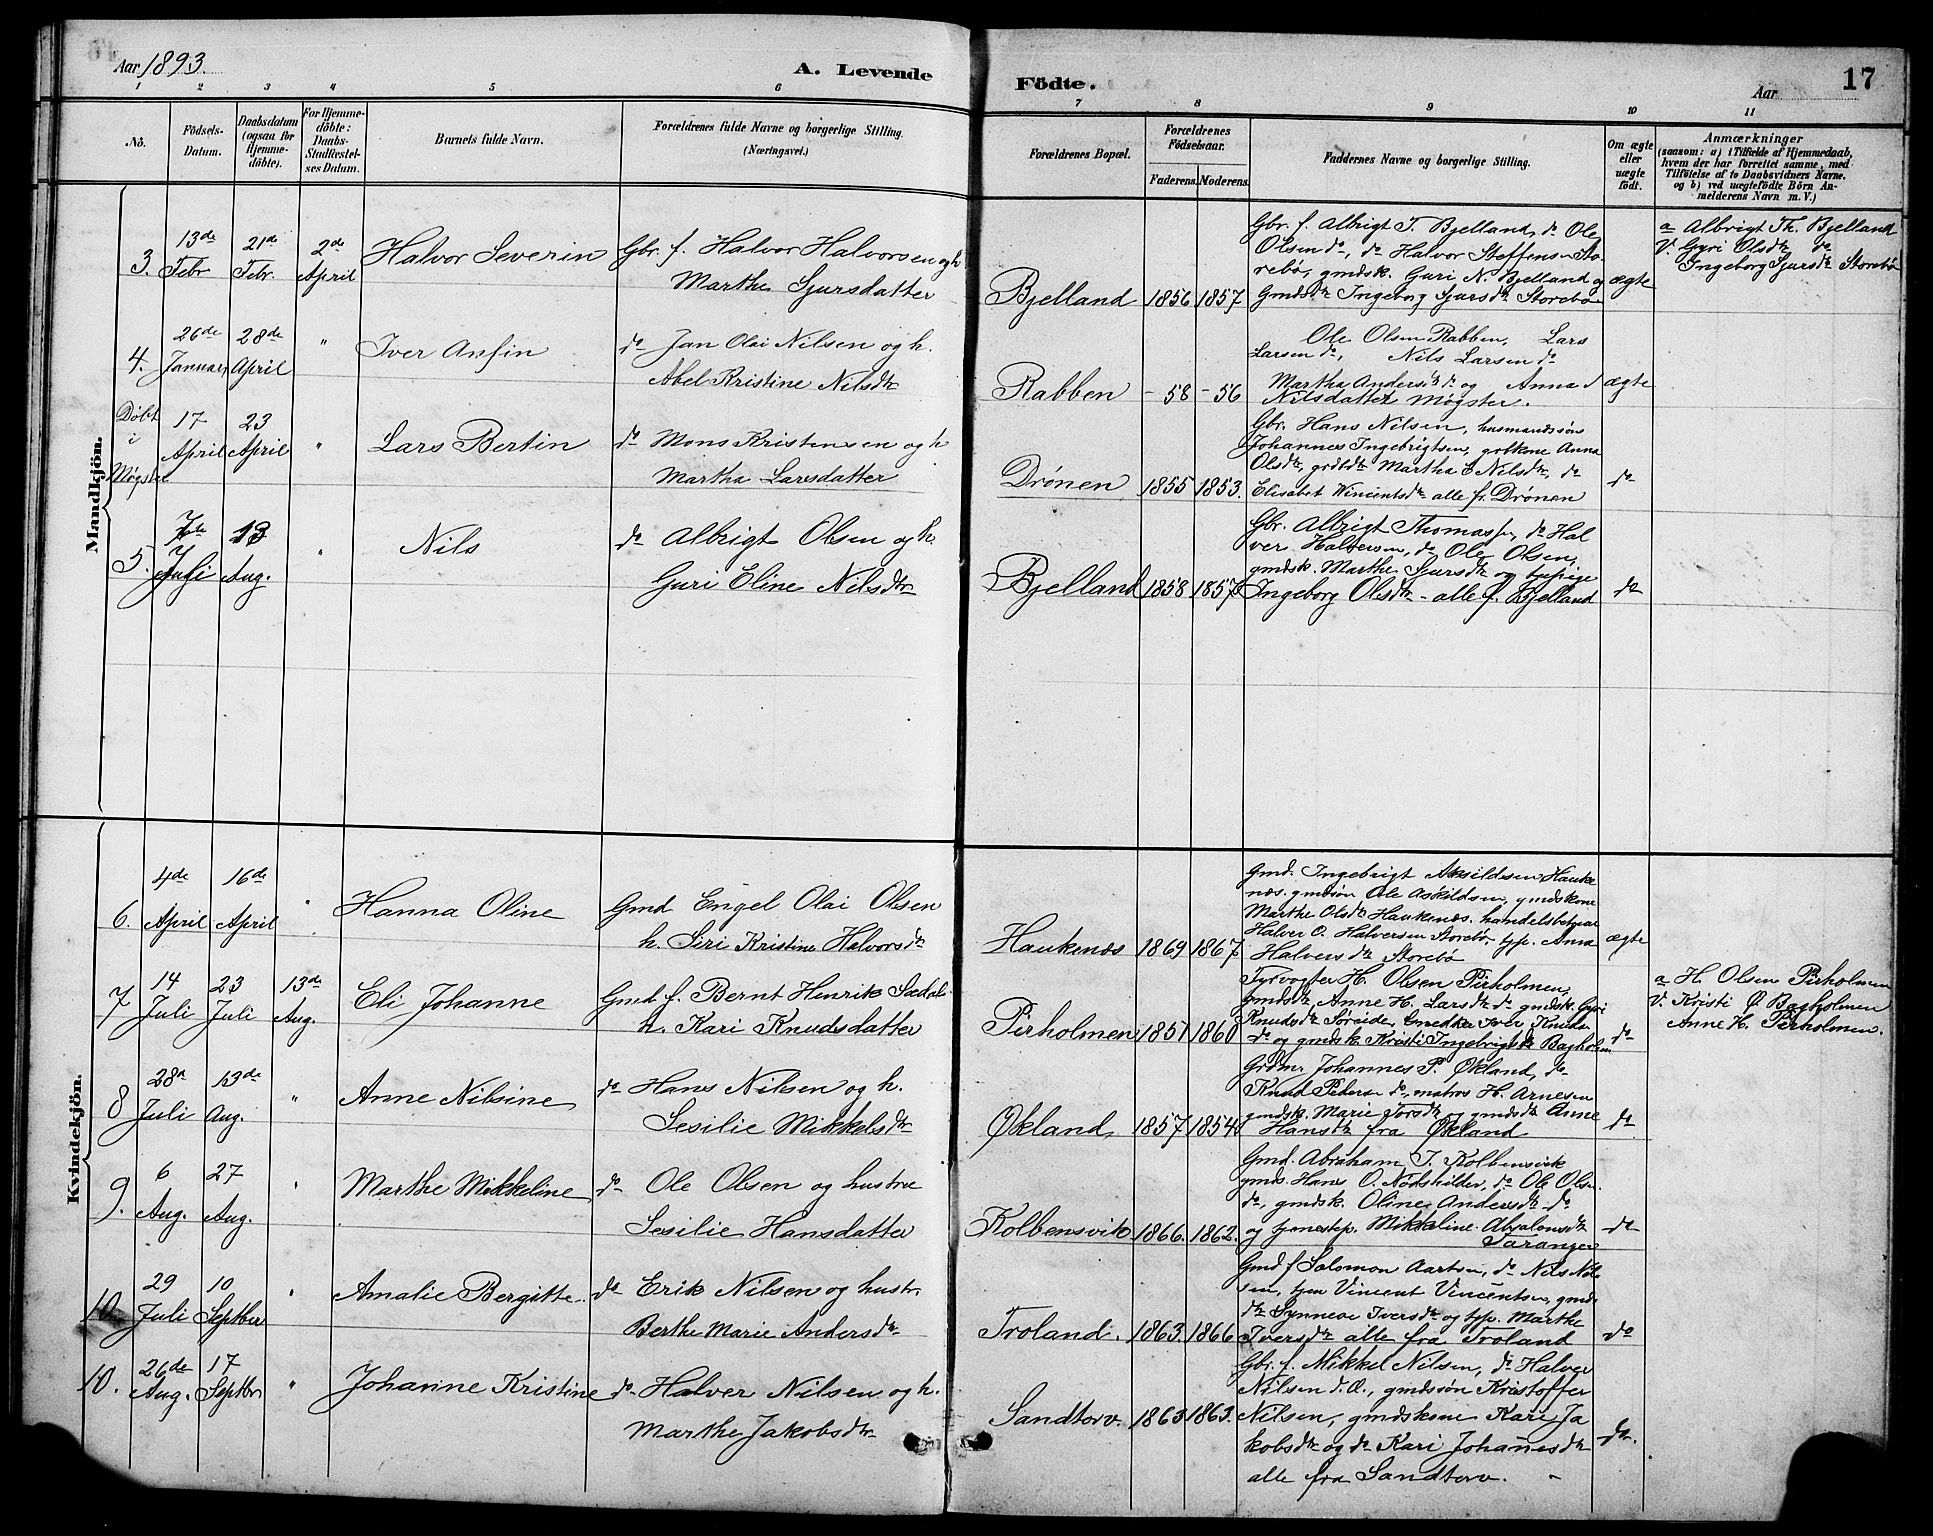 Aar 1893.
A. Levende
Födte.
Aar
17
1 2 3 4 5 6 7 8 9 10 11
No.
Födsels-
Datum.
Daabsdatum
(ogsaa for
Hjemme-
döbte).
For Hjemme-
döbte:
Daabs-
Stadfæstel-
ses Datum.
Barnets fulde Navn.
Forældrenes fulde Navne og borgerlige Stilling.
(Næringsvei.)
Forældrenes Bopæl.
Forældrenes
Födselsaar.
Faderens. Moderens.
Faddernes Navne og borgerlige Stilling.
Om ægte
eller
uægte
födt.
Anmærkninger
(saasom: a) i Tilfælde af Hjemmedaab,
hvem der har forrettet samme, med
Tilföielse af to Daabsvidners Navne,
og b) ved uægtefödte Börn An-
melderens Navn m. V.)
Mandkjön.
3. 13de Febr 21de Febr. 2de April
Halvor Severin
Gbr. f. Halvor Halvorsen og h
Marthe Sjursdatter
Bjelland 1856 1857
Gbr. f. Albrigt T. Bjelland, do Ole
Olsen do, do Halvor Steffensen Sto-
rebø, gmdsk. Guri N. Bjelland og
Gmdsdtr Ingeborg Sjursdtr Storebø
ægte
a Albrigt Th. Bjelland
V. Gyri Olsdtr do
Ingeborg Sjursdtr Storebø
4. 26de Januar 28de April "
Iver Anfin
do Jan Olai Nilsen og h.
Abel Kristine Nilsdtr
Rabben - 58 - 56
Ole Olsen Rabben, Lars
Larsen do, Nils Larsen do
Martha Andersdtr do og Anna
Nilsdatter Møgster.
ægte
Døbt
i
Møgster
17 April 23 April "
Lars Bertin
do Mons Kristensen og h
Martha Larsdatter
Drønen 1855 1853.
Gbr. Hans Nilsen, husmandssøn
Johannes Ingebrigtsen, Anna
Olsdtr, Martha E Nilsdtr, do
Elisabet Wincentsdtr alle fr. Drønen
do
5. 7de Juli 13 Aug. "
Nils
do Albrigt Olsen og h.
Guri Eline Nilsdtr
Bjelland 1858 1857
Gbr. Albrigt Thomass, do Hal
ver Halversen, do Ole Olsen,
gmdsk. Marthe Sjursdtr og tjepige
Ingeborg Olsdtr - alle f. Bjelland
do
Kvindekjön.
6. 4de April 16de April "
Hanna Oline
Gmd Engel Olai Olsen
h. Siri Kristine Halvorsdtr
Haukenæs 1869 1867
Gmd. Ingebrigt Aksildsen Hauke
næs. gmdsøn Ole Askildsen, gmdskone
Marthe Olsdtr Haukenæs. handelsbetjent
Halver O. Halversen Storebø, tjp. Anna
Halversdtr Storebø
ægte
7 14 Juli 23 Juli 13de Aug.
Eli Johanne
Gmd f. Bernt Henrik
h. Kari Knudsdatter
Pirholmen 1851 1860
Fyrvogter H. Olsen Pirholmen,
Gmdsdtr Anne H. Larsdtr do gmdsk. Gyri
Knudsdtr Søreide, Iver Knuds
do og gmdsk. Kristi Ingebrigtsdtr Bagholm
do
a H. Olsen Pirholmen
V. Kristi Bagholmen
Anne H. Pirholmen.
8 28d Juli 13de Aug. "
Anne Nilsine
do Hans Nilsen og h.
Sesilie Mikkelsdtr
Økland, 1857 1854
Grdmr Johannes P. Økland, do
Knud Peders do, matros H. Arnesen
gmdsk. Marie Torsdtr og gmdsdtr Anne
Hansdtr fra Økland
do
9. 6 Aug. 27 Aug. "
Marthe Mikkeline
do Ole Olsen og hustru
Sesilie Hansdatter
Kolbensvik 1866. 1862.
Gmd. Abraham J. Kolbensvik
gmds. Hans O. Nodshilder, do Ole Olsn.
do, gmdsk. Oline Andersdtr do
og tjenestep. Mikkeline Absalonsdtr
Taranger
do
10. 29 Juli 10 Septber "
Amalie Bergitte
do Erik Nilsen og hustr.
Berthe Marie Andersdtr
Troland. 1863. 1866
Gmd f Salomon Aartsen, do Nils Nil
sen, tjen Vincent Vincentsn, gmds
dtr Synneve Iversdtr og tjp. Marthe
Iversdtr alle fra Troland
do
10. 26de Aug. 17 Septbr "
Johanne Kristine
do Halver Nilsen og h.
Marthe Jakobsdtr
Sandtorv 1863 1863.
Gbr. f. Mikkel Nilsen, do Halver
Nilsen d.o., gmdssøn Kristoffer
Nilsen, gmdskone Kari Ja
kobsdtr og do Kari Johannesdtr
alle fra Sandtorv. -
do.